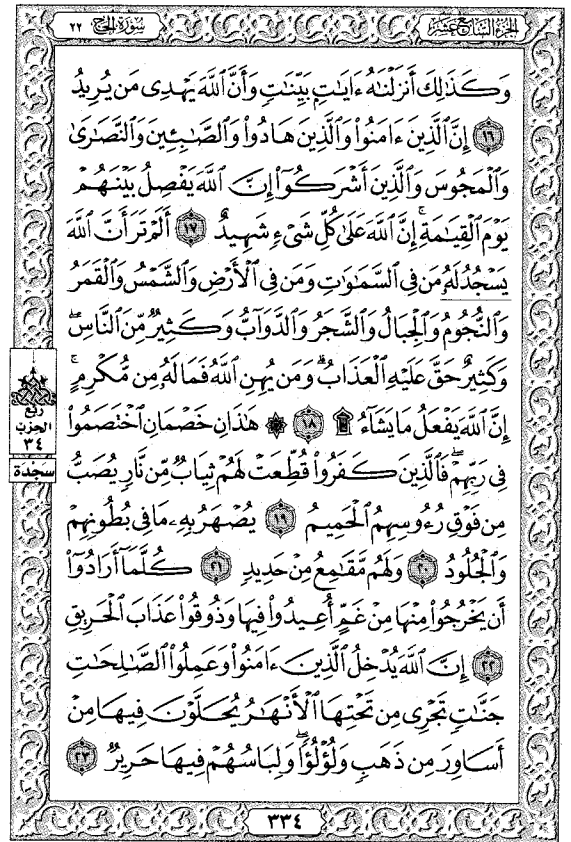 سورة الحج ٢٢
الجزء السابع عشر
وَكَذَٰلِكَ أَنزَلْنَٰهُ ءَايَٰتٍۭ بَيِّنَٰتٍ وَأَنَّ ٱللَّهَ يَهْدِى مَن يُرِيدُ
١٦ إِنَّ ٱلَّذِينَ ءَامَنُوا۟ وَٱلَّذِينَ هَادُوا۟ وَٱلصَّٰبِـِٔينَ وَٱلنَّصَٰرَىٰ
وَٱلْمَجُوسَ وَٱلَّذِينَ أَشْرَكُوٓا۟ إِنَّ ٱللَّهَ يَفْصِلُ بَيْنَهُمْ
يَوْمَ ٱلْقِيَٰمَةِ ۚ إِنَّ ٱللَّهَ عَلَىٰ كُلِّ شَىْءٍ شَهِيدٌ ١٧ أَلَمْ تَرَ أَنَّ ٱللَّهَ
يَسْجُدُ لَهُۥ مَن فِى ٱلسَّمَٰوَٰتِ وَمَن فِى ٱلْأَرْضِ وَٱلشَّمْسُ وَٱلْقَمَرُ
وَٱلنُّجُومُ وَٱلْجِبَالُ وَٱلشَّجَرُ وَٱلدَّوَآبُّ وَكَثِيرٌ مِّنَ ٱلنَّاسِ ۖ
وَكَثِيرٌ حَقَّ عَلَيْهِ ٱلْعَذَابُ ۗ وَمَن يُهِنِ ٱللَّهُ فَمَا لَهُۥ مِن مُّكْرِمٍ ۚ
إِنَّ ٱللَّهَ يَفْعَلُ مَا يَشَآءُ ۩ ١٨ ۞ هَٰذَانِ خَصْمَانِ ٱخْتَصَمُوا۟
فِى رَبِّهِمْ ۖ فَٱلَّذِينَ كَفَرُوا۟ قُطِّعَتْ لَهُمْ ثِيَابٌ مِّن نَّارٍ يُصَبُّ
مِن فَوْقِ رُءُوسِهِمُ ٱلْحَمِيمُ ١٩ يُصْهَرُ بِهِۦ مَا فِى بُطُونِهِمْ
وَٱلْجُلُودُ ٢٠ وَلَهُم مَّقَٰمِعُ مِنْ حَدِيدٍ ٢١ كُلَّمَآ أَرَادُوٓا۟
أَن يَخْرُجُوا۟ مِنْهَا مِنْ غَمٍّ أُعِيدُوا۟ فِيهَا وَذُوقُوا۟ عَذَابَ ٱلْحَرِيقِ
٢٢ إِنَّ ٱللَّهَ يُدْخِلُ ٱلَّذِينَ ءَامَنُوا۟ وَعَمِلُوا۟ ٱلصَّٰلِحَٰتِ
جَنَّٰتٍ تَجْرِى مِن تَحْتِهَا ٱلْأَنْهَٰرُ يُحَلَّوْنَ فِيهَا مِنْ
أَسَاوِرَ مِن ذَهَبٍ وَلُؤْلُؤًا ۖ وَلِبَاسُهُمْ فِيهَا حَرِيرٌ ٢٣
ربع
الحزب
٣٤
سجدة
٣٣٤